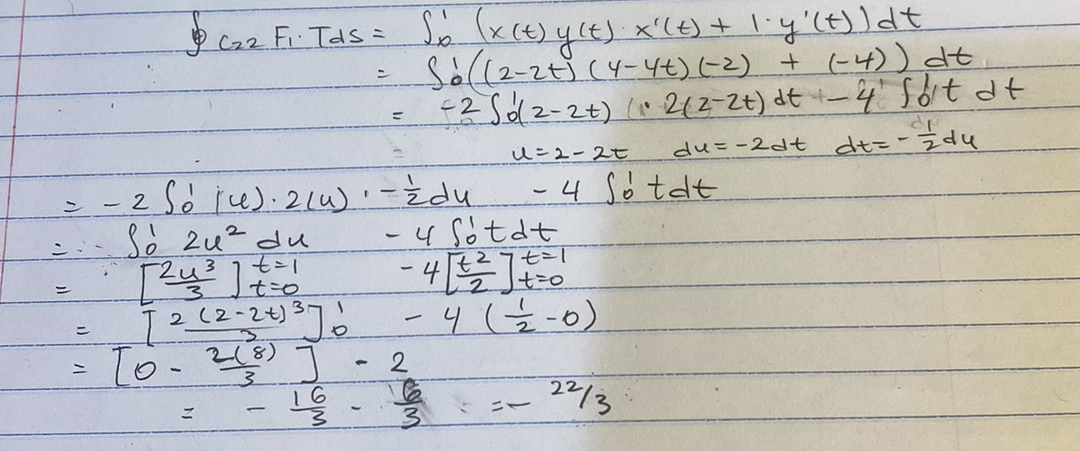 ∮ C22 F1 · Tds = ∫₀¹ (x(t) y(t) · x'(t) + 1 · y'(t)) dt
= ∫₀¹((2-2t) (4-4t) (-2) + (-4)) dt
= -2 ∫₀¹(2-2t) · 2(2-2t) dt - 4 ∫₀¹ t dt
u = 2-2t du = -2dt dt = -1/2 du
= -2 ∫₀¹ (u) · 2(u) · -1/2 du - 4 ∫₀¹ t dt
= ∫₀¹ 2u² du - 4 ∫₀¹ t dt
= [2u³/3] t=1 t=0 - 4 [t²/2] t=1 t=0
= [2(2-2t)³/3]₀¹ - 4 (1/2 - 0)
= [0 - 2(8)/3] - 2
= - 16/3 - 6/3 = - 22/3